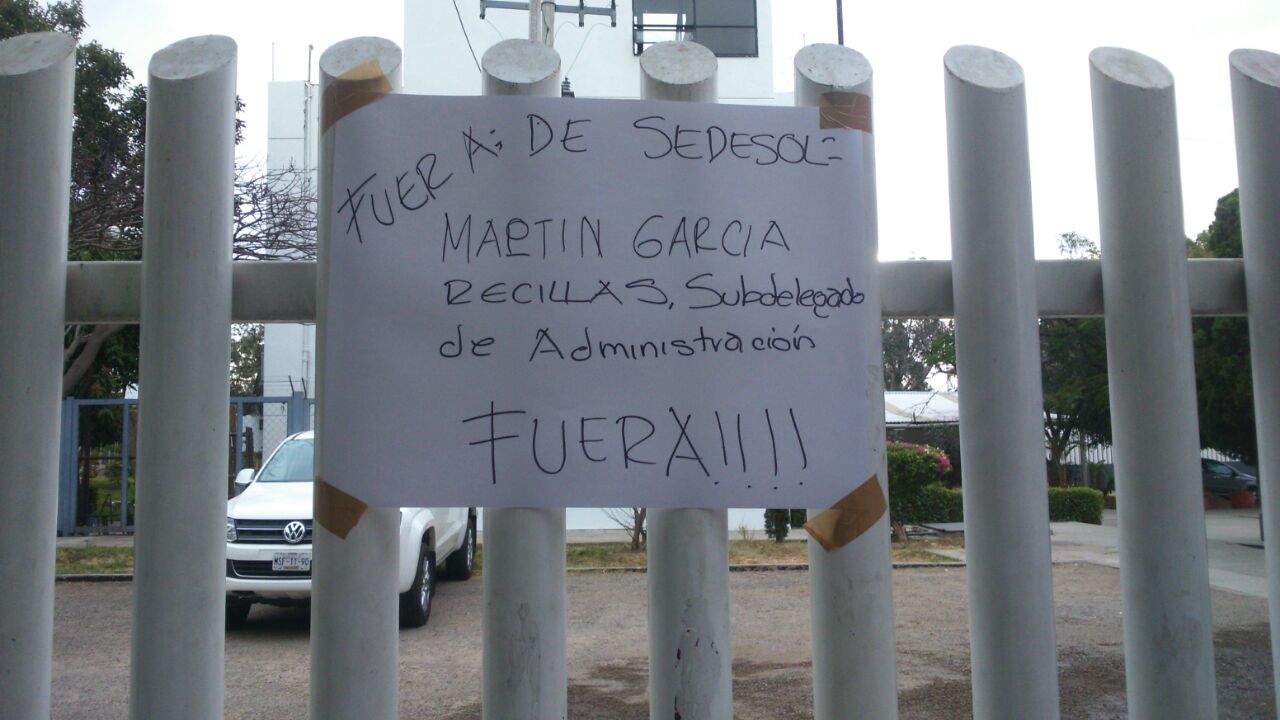 FUERA: DE SEDESOL=
MARTIN GARCIA
RECILLAS, Subdelegado
de Administración
FUERA!!!!
MSF-11-90